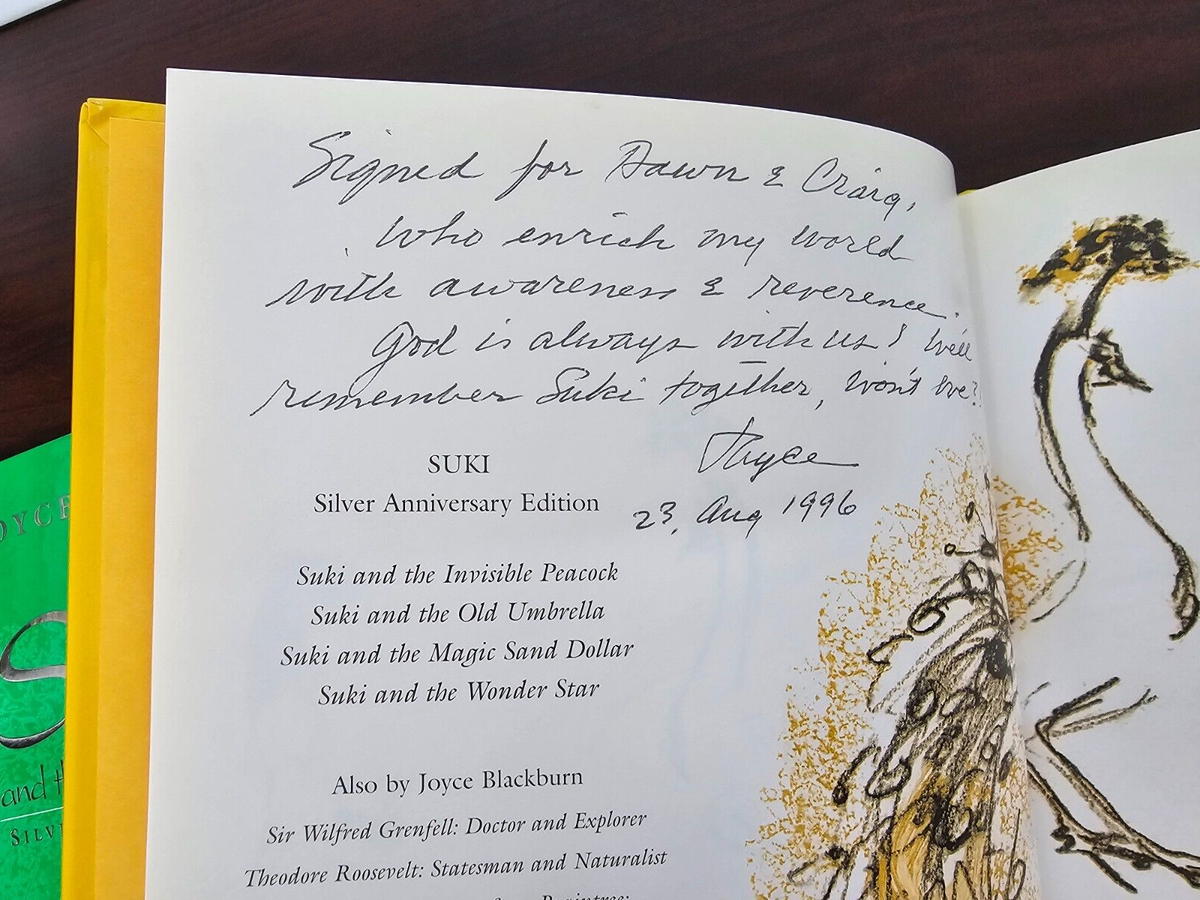 Signed for Dawn & Craig,
who enrich my world
with awareness & reverence.
God is always with us! We'll
remember Suki together, won't we?!
Joyce
23, Aug 1996
SUKI
Silver Anniversary Edition
Suki and the Invisible Peacock
Suki and the Old Umbrella
Suki and the Magic Sand Dollar
Suki and the Wonder Star
Also by Joyce Blackburn
Sir Wilfred Grenfell: Doctor and Explorer
Theodore Roosevelt: Statesman and Naturalist
OYCE
S
and th
SILV